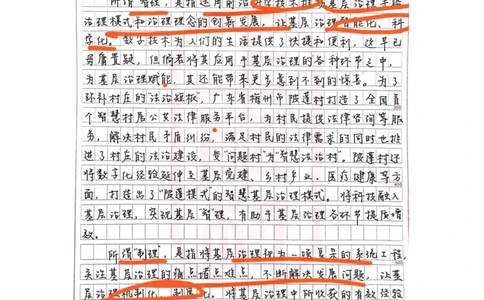 所谓“智理”,是指运用前沿技术推动基层治理手段、
治理模式和治理理念的创新发展,让基层治理智能化、科
学化。数字技术为人们的生活提供了快捷和便利,这早已
毋庸置疑,但倘若将其应用于基层治理的各种环节之中,
为基层治理赋能,其还能带来更多意想不到的惊喜。为了
弥补村庄的“法治短板”,广东省梅州市陂蓬村打造了全国首
个智慧村居公共法律服务平台,为村民提供法律咨询等服
务,解决村民矛盾纠纷,满足村民的法律需求的同时也推
进了村庄的法治建设,变“问题村”为“智慧法治村”。陂蓬村还
将数字化经验延伸至基层党建、乡村产业、医疗健康等方
面,打造出了“陂蓬模式”的智慧基层治理模式。将科技融入
基层治理,实现基层“智理”,有助于基层治理各环节提质增
效。
所谓“制理”,是指将基层治理视为一项复杂的系统工程,
关注基层治理的痛点堵点难点,不断解决发展问题,让基
层治理机制化、制度化。将基层治理中所收获的有效经验